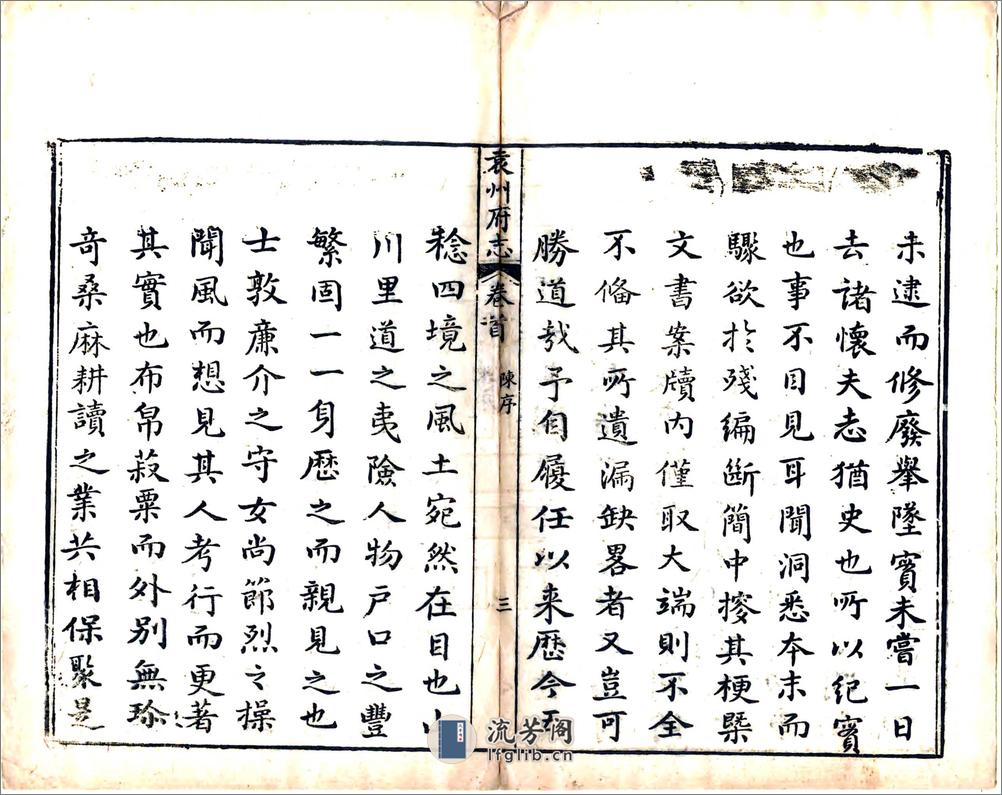 未逮而修廢舉墜實未嘗一日
去諸懷夫志猶史也所以紀實
也事不目見耳聞洞悉本末而
驟欲於殘編斷簡中摉其梗槩
文書案牘內僅取大端則不全
不俻其所遺漏缺畧者又豈可
勝道哉予自履任以来歴今五
袁州府志
卷首
陳序
三
稔四境之風土宛然在目也山
川里道之夷險人物戶口之豐
繁固一一身歴之而親見之也
士敦亷介之守女尚節烈之操
聞風而想見其人考行而更著
其實也布帛菽粟而外别無珍
竒桑麻耕讀之業共相保聚是
流芳阁
lfglib.cn